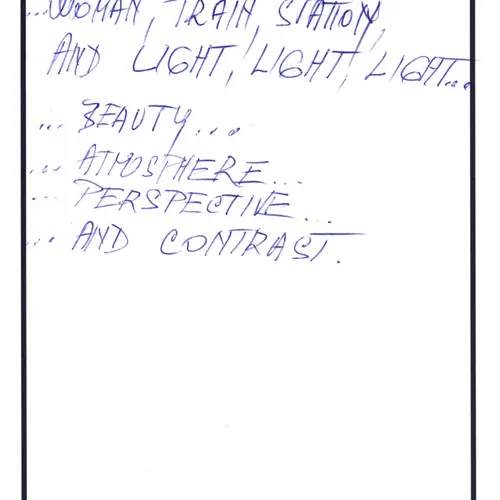 ...WOMAN, TRAIN, STATION,
AND LIGHT, LIGHT, LIGHT...
... BEAUTY...
... ATMOSPHERE...
... PERSPECTIVE...
... AND CONTRAST.